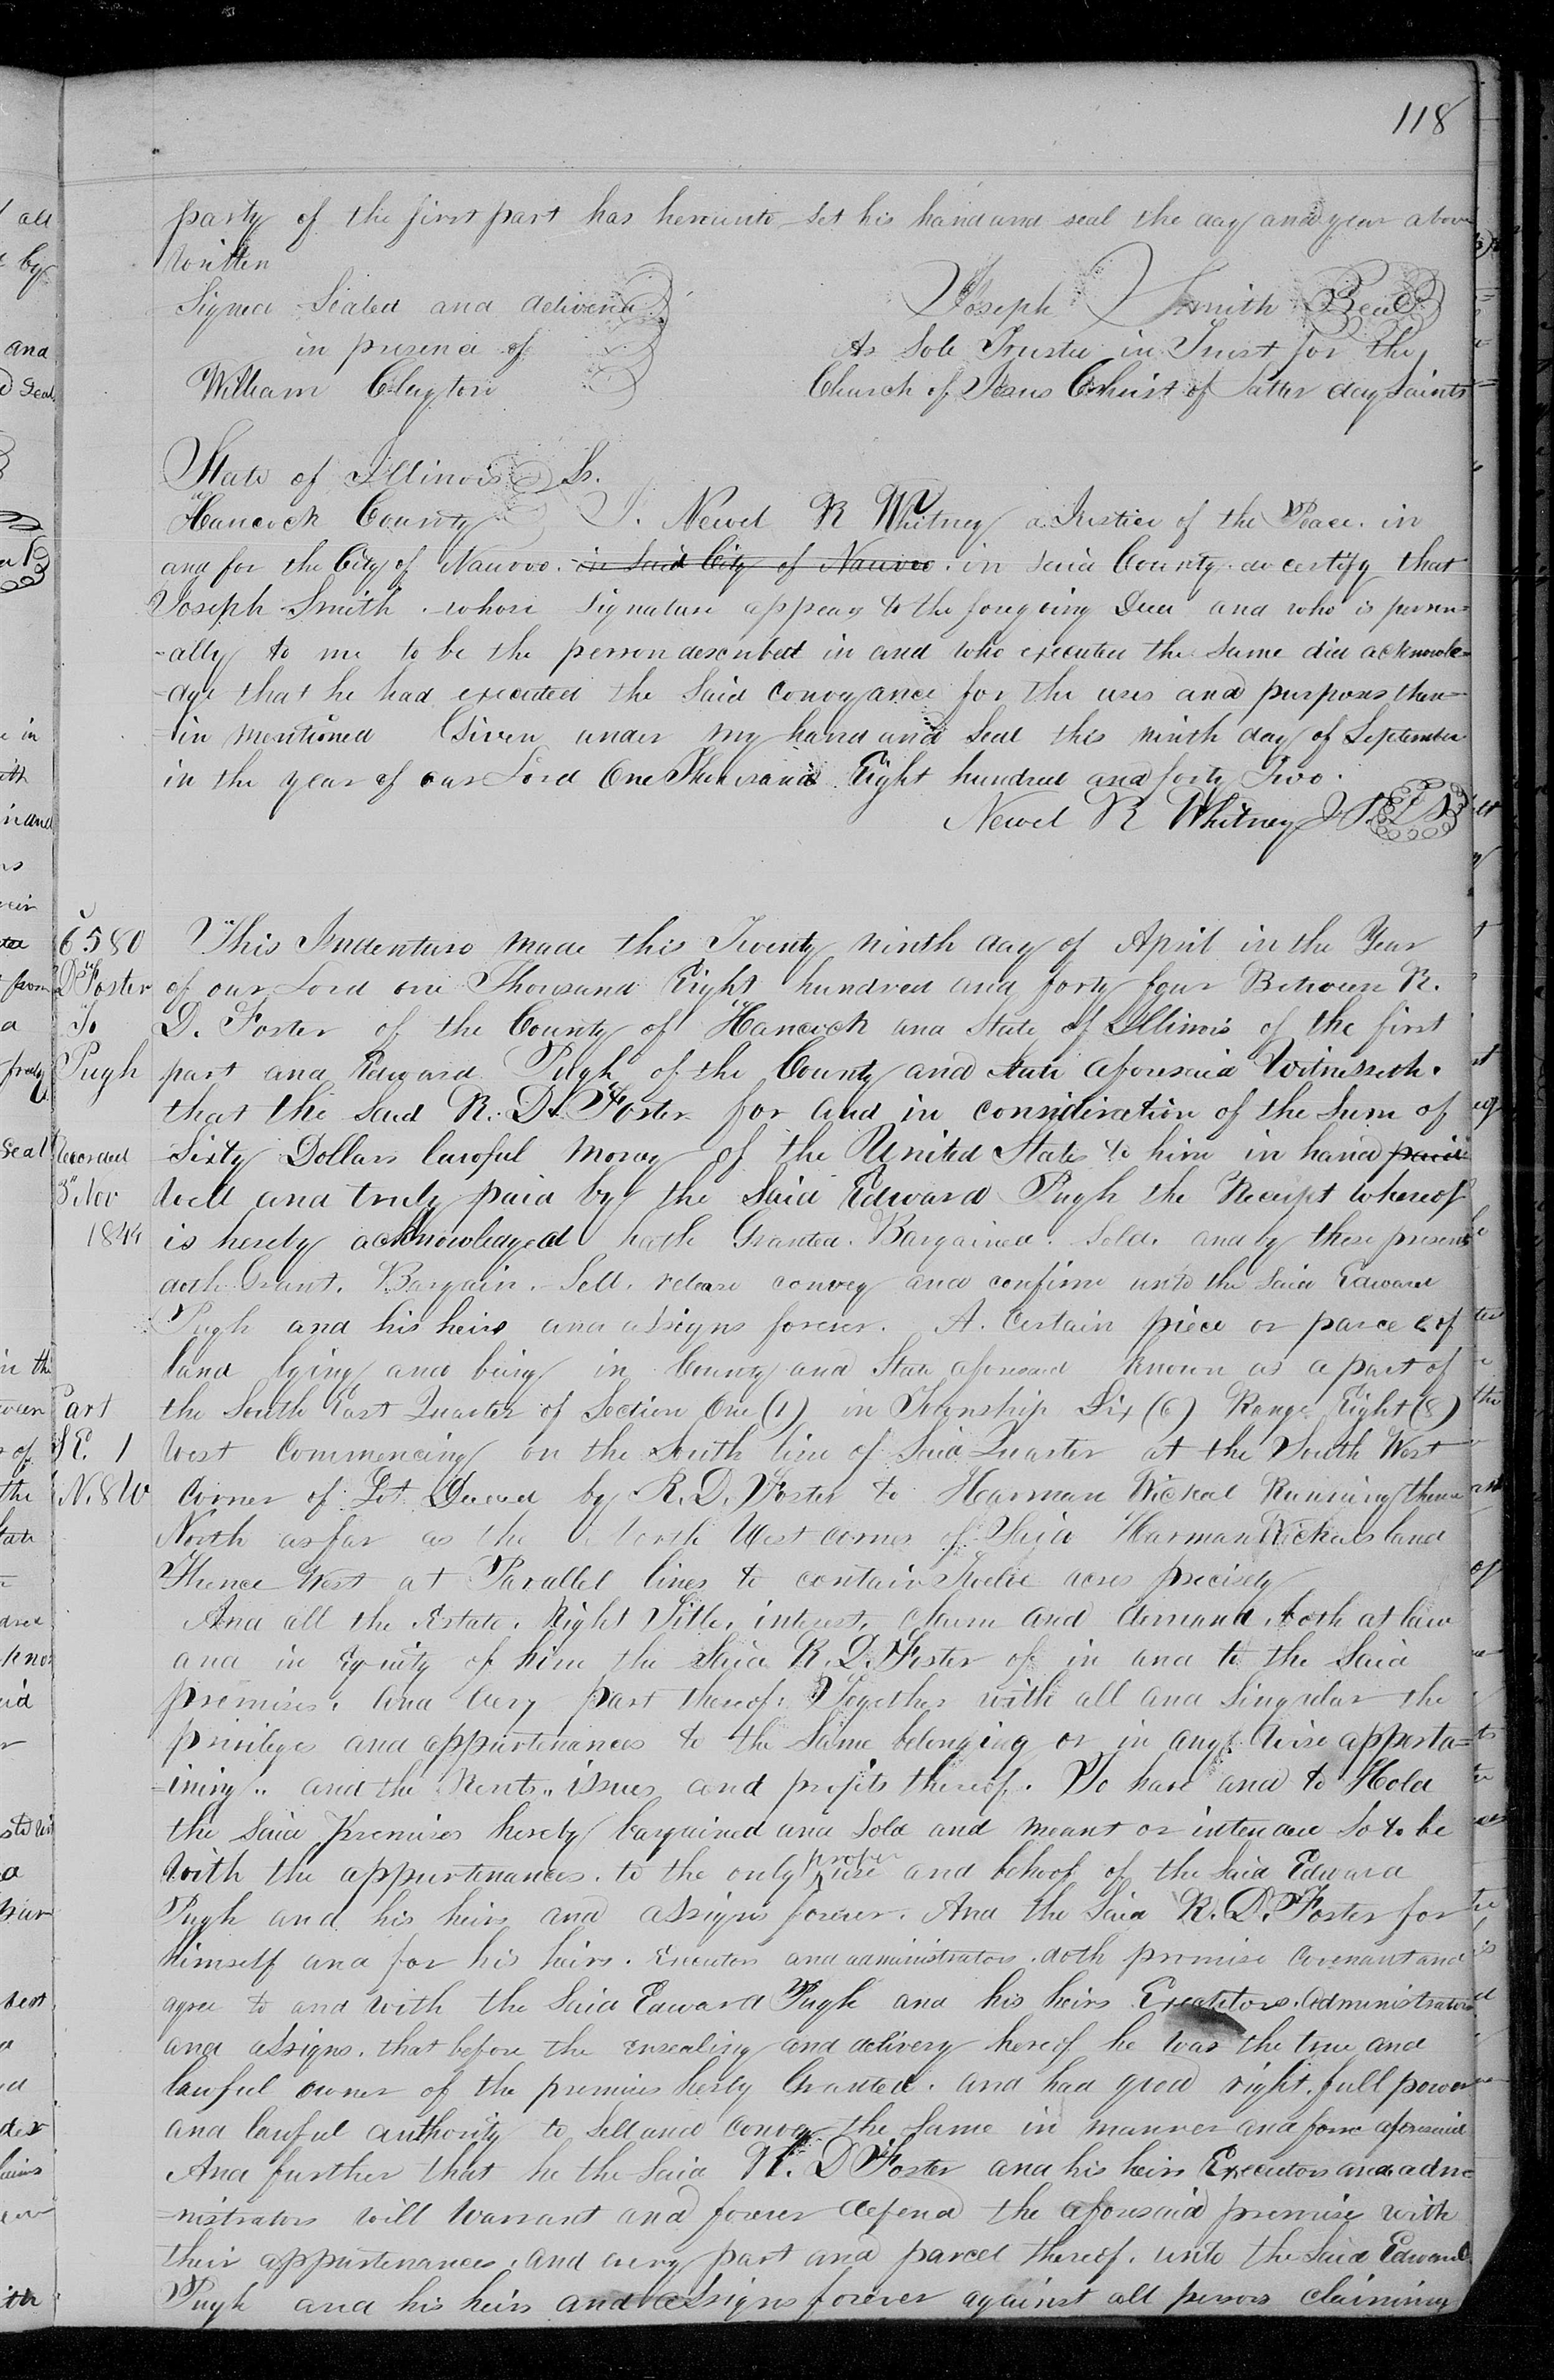 118
party of the first part has hereunto set his hand and seal the day and year above
written
Signed Sealed and delivered
in presence of
William Clayton
Joseph Smith Seal
As Sole Trustee in Trust for the
Church of Jesus Christ of Latter day Saints
State of Illinois Ss.
Hancock County I. Newel K Whitney a Justice of the Peace. in
and for the City of Nauvoo. in said City of Nauvoo. in said County. do certify that
Joseph Smith. whose signature appears to the foregoing Deed and who is person=
=ally to me to be the person described in and who executed the same did acknowle=
=dge that he had executed the said conveyance for the uses and purposes there=
=in mentioned Given under my hand and seal this ninth day of September
in the year of our Lord One Thousand Eight hundred and forty Two.
Newel K Whitney J.P. L S
6580
D Foster
To
Pugh
Recorded
3" Nov
1844
Part
S E. 1
N. 8 W
This Indenture made this Twenty ninth day of April in the Year
of our Lord one Thousand Eight hundred and forty four Between R.
D. Foster of the County of Hancock and State of Illinois of the first
part and Edward Pugh of the County and State aforesaid Witnesseth.
that the said R. D. Foster for and in consideration of the sum of
Sixty Dollars lawful money of the United States to him in hand paid
well and truly paid by the said Edward Pugh the Receipt whereof
is hereby acknowledged hath Granted. Bargained. Sold. and by these presents
doth Grant. Bargain. Sell. release convey and confirm unto the said Edward
Pugh and his heirs and assigns forever. A. Certain piece or parcel of
land lying and being in County and State aforesaid known as a part of
the South East Quarter of Section One (1) in Township Six (6) Range Eight (8)
West Commencing on the South line of said Quarter at the South West
corner of Lot Deeded by R. D. Foster to Harman Nickal Running thence
North as far as the North West corner of said Harman Nickals land
Thence West at Parallel lines to contain Twelve acres precisely
And all the Estate. Right Title. interest. claim and demand. both at law
and in Equity of him the said R. D. Foster of in and to the said
premises. and every part thereof: Together with all and singular the
privileges and appurtenances to the same belonging or in any wise apperta=
=ining.. and the Rents.. issues and profits thereof. To have and to Hold
the said Premises hereby bargained and sold and meant or intended so to be
with the appurtenances. to the only proper use and behoof of the said Edward
Pugh and his heirs and assigns forever. And the said R. D. Foster for
himself and for his heirs. Executors and administrators. doth promise covenant and
agree to and with the said Edward Pugh and his heirs Executors. Administrators
and assigns. that before the ensealing and delivery hereof he was the true and
lawful owner of the premises hereby Granted. and had good right. full power
and lawful authority to sell and convey the same in manner and form aforesaid
And further that he the said R. D Foster and his heirs Executors and adm=
=nistrators will Warrant and forever defend the aforesaid premise with
their appurtenances. and every part and parcel thereof. unto the said Edward
Pugh and his heirs and assigns forever against all persons claiming